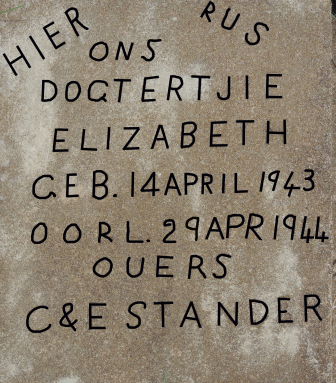 HIER RUS
ONS
DOGTERTJIE
ELIZABETH
GEB. 14 APRIL 1943
OORL. 29 APR 1944
OUERS
C&E STANDER